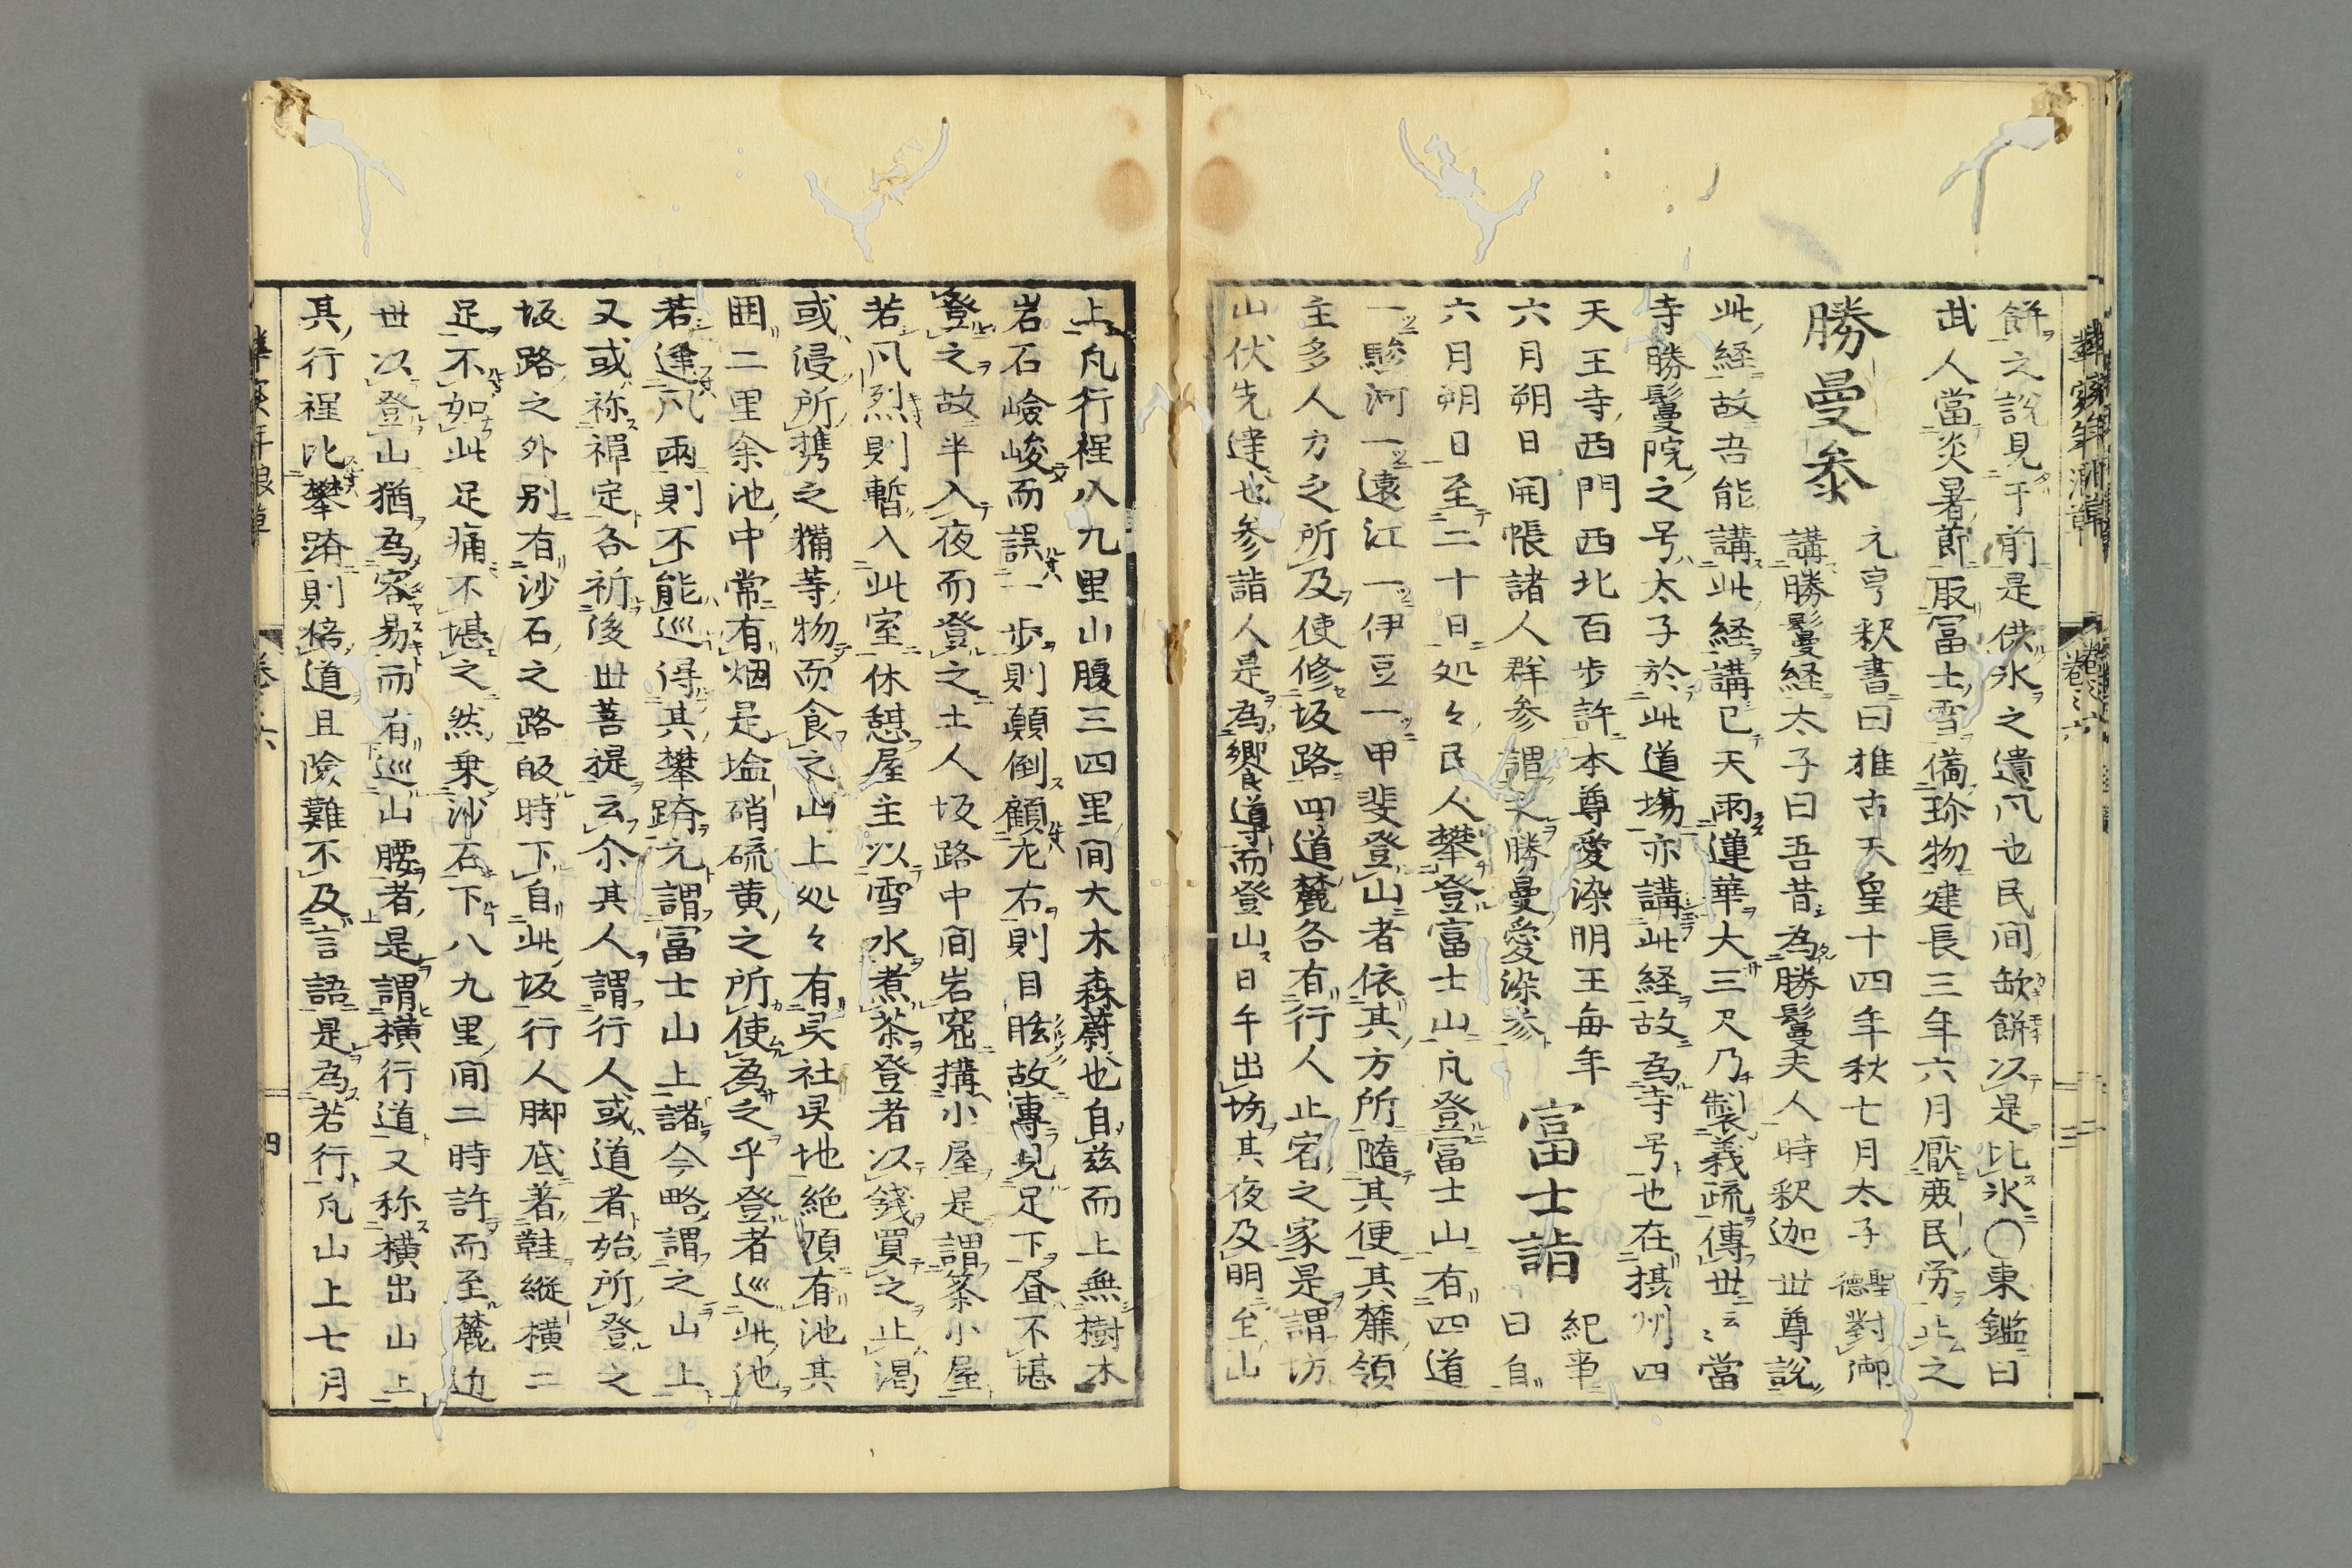 餅之說見于前是供氷之遺凡也民间缺餅以是比氷〇東鑑曰
武人當炎暑節取冨士雪備珍物建長三年六月厭民労止之
勝曼参
元亨釈書曰推古天皇十四年秋七月太子聖德對御
講勝鬘経太子曰吾昔為勝鬘夫人時釈迦世尊説
此経故吾能講此経講已天雨蓮華大三尺乃製義疏傳世云〻當
寺勝鬘院之号太子於此道場亦講此経故為寺号也在摂州四
天王寺西門西北百歩許本尊愛染明王毎年
六月朔日開帳諸人群参謂之勝曼愛染参
富士詣
紀事
曰自
六月朔日至二十日処々民人攀登富士山凡登富士山有四道
一駿河一遠江一伊豆一甲斐登山者依其方所隨其便其麓領
主多人力之所及使修坂路四道麓各有行人止宿之家是謂坊
山伏先達也参詣人是為饗導而登山日午出坊其夜及明至山
上凡行程八九里山腹三四里间大木森蔚也自茲而上無樹木
岩石嶮峻而誤一歩則顛倒顧左右則目眩故專見足下昼不堪
登之故半入夜而登之土人坂路中间岩窟搆小屋是謂篆小屋
若凡烈則暫入此室休憩屋主以雪水煮茶登者以錢買之止渇
或浸所携之糒等物而食之山上処々有㚑社㚑地絶頂有池其
囲二里余池中常有烟是塩硝硫黄之所使為之乎登者巡此池
若逢凡雨則不能巡得其攀躋元謂冨士山上諸今略謂之山上
又或祢禪定各祈後世菩提云尒其人謂行人或道者始所登之
坂路之外别有沙石之路皈時下自此坂行人脚底著鞋縦横二
足不如此足痛不堪之然乗沙石下八九里间二時許而至麓近
世以登山猶為容易而有巡山腰者是謂横行道又称横出山上
其行程比攀躋則倍道且險難不及言語是為若行凡山上七月
卷之六
四